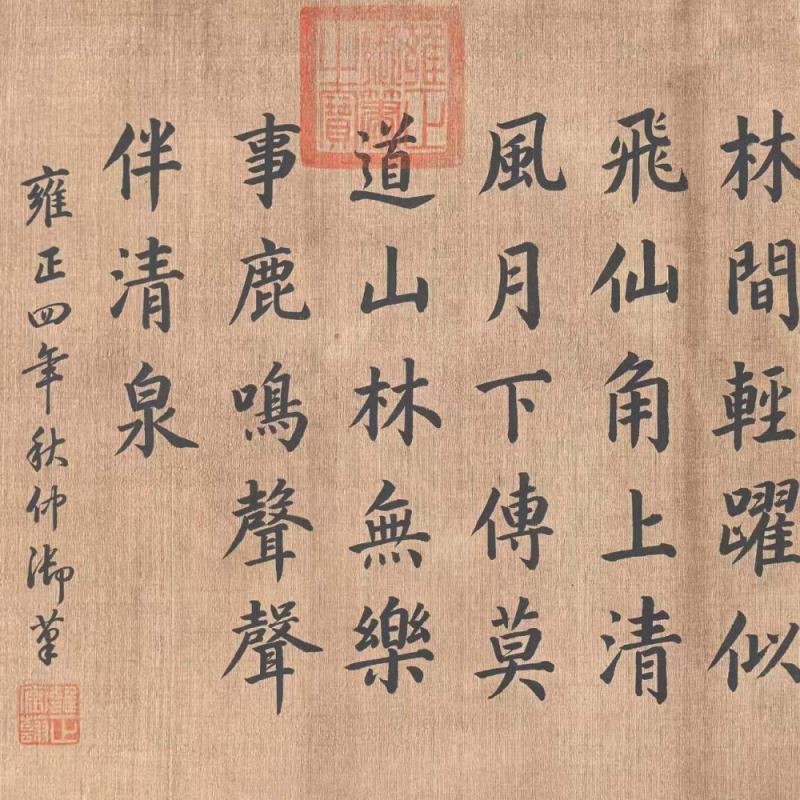 林間輕躍似
飛仙角上清
風月下傳莫
道山林無樂
事鹿鳴聲聲
伴清泉
雍正四年秋仲御筆
雍正御筆之寶
雍正宸翰